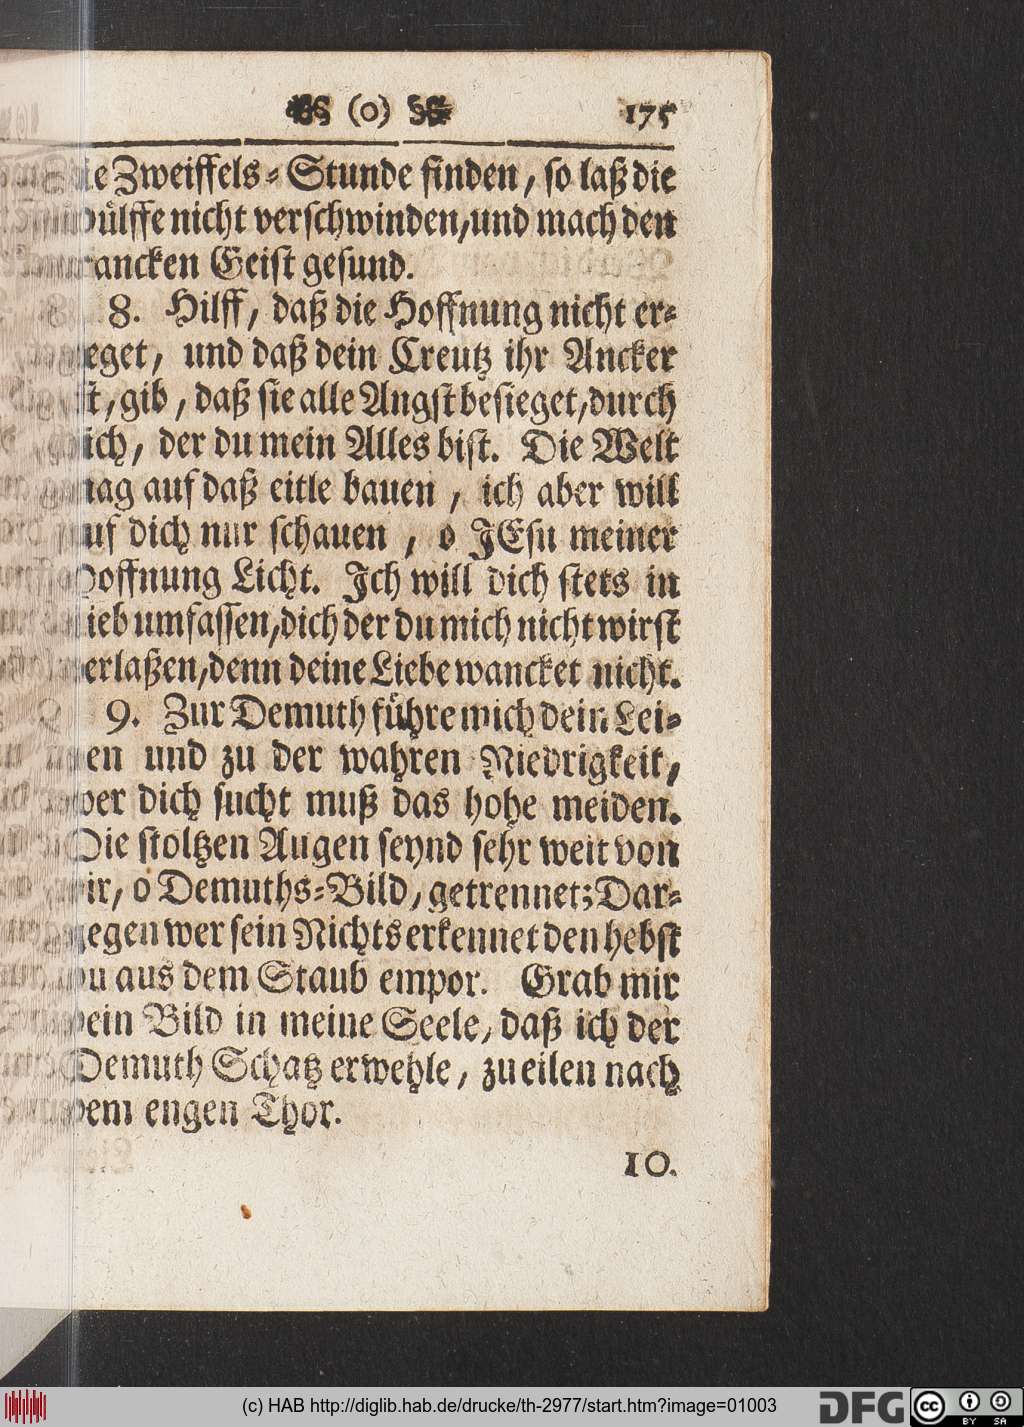 (o) 175
die Zweiffels-Stunde finden, so laß die
Hülffe nicht verschwinden, und mach den
krancken Geist gesund.
8. Hilff, daß die Hoffnung nicht er-
lieget, und daß dein Creutz ihr Ancker
ist, gib, daß sie alle Angst besieget, durch
dich, der du mein Alles bist. Die Welt
mag auf daß eitle bauen, ich aber will
auf dich nur schauen, o JEsu meiner
Hoffnung Licht. Ich will dich stets in
Lieb umfassen, dich der du mich nicht wirst
verlaßen, denn deine Liebe wancket nicht.
9. Zur Demuth führe mich dein Lei-
den und zu der wahren Niedrigkeit,
wer dich sucht muß das hohe meiden.
Die stoltzen Augen seynd sehr weit von
dir, o Demuths-Bild, getrennet; Dar-
gegen wer sein Nichts erkennet den hebst
du aus dem Staub empor. Grab mir
dein Bild in meine Seele, daß ich der
Demuth Schatz erwehle, zu eilen nach
dem engen Thor.
10.
(c) HAB http://diglib.hab.de/drucke/th-2977/start.htm?image=01003
DFG
cc BY SA